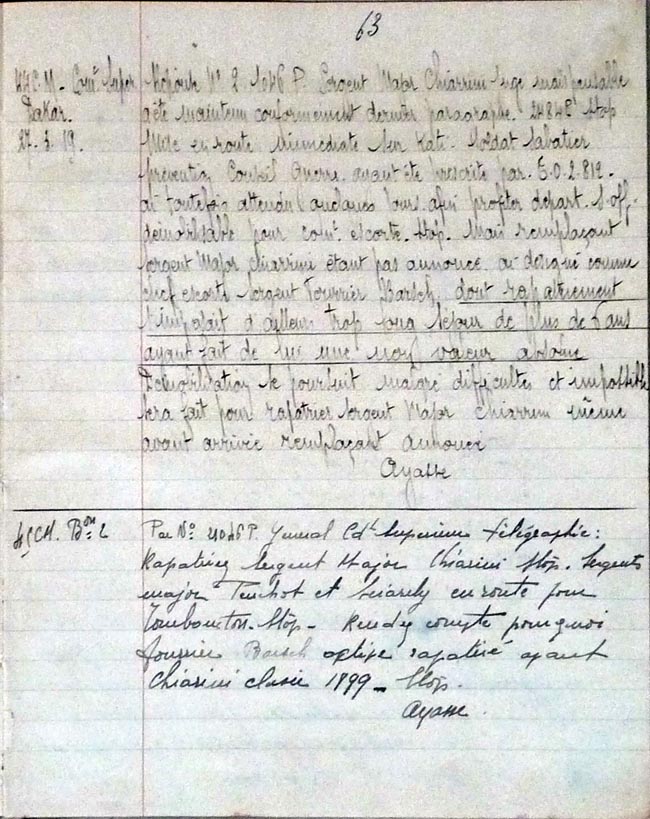 63
44 C.M. Comt Super
Dakar.
27. 3. 19.
Réponse N° 2.1046 P. Sergent Major Chiarini jugé indispensable
a été maintenu conformément dernier paragraphe. 2484 Stop
Mise en route immédiate sur Kati. Soldat Sabatier
prévention Conseil Guerre ayant été prescrite par. E.O.2.812.
ai toutefois attendu quelques jours afin profiter départ S-off.
démobilisable pour escorte. Stop. Mais remplaçant
Sergent Major Chiarini étant pas annoncé ai désigné comme
chef escorte Sergent Fourrier Barsch, dont rapatriement
s'imposait d'ailleurs trop long séjour de plus de ans
ayant fait de lui une non valeur absolue
Démobilisation se poursuit malgré difficultés et impossible
sera fait pour rapatrier Sergent Major Chiarini même
avant arrivée remplaçant annoncé
Ayasse
45 CM. Bon 2
Par N° 21046 P. Général Cdt Supérieur télégraphie:
Rapatriez Sergent Major Chiarini Stop. Sergents
major et en route pour
Tombouctou. Stop - Rendez compte pourquoi
fourrier Barsch rapatrié avant
Chiarini classe 1899 - Stop.
Ayasse.